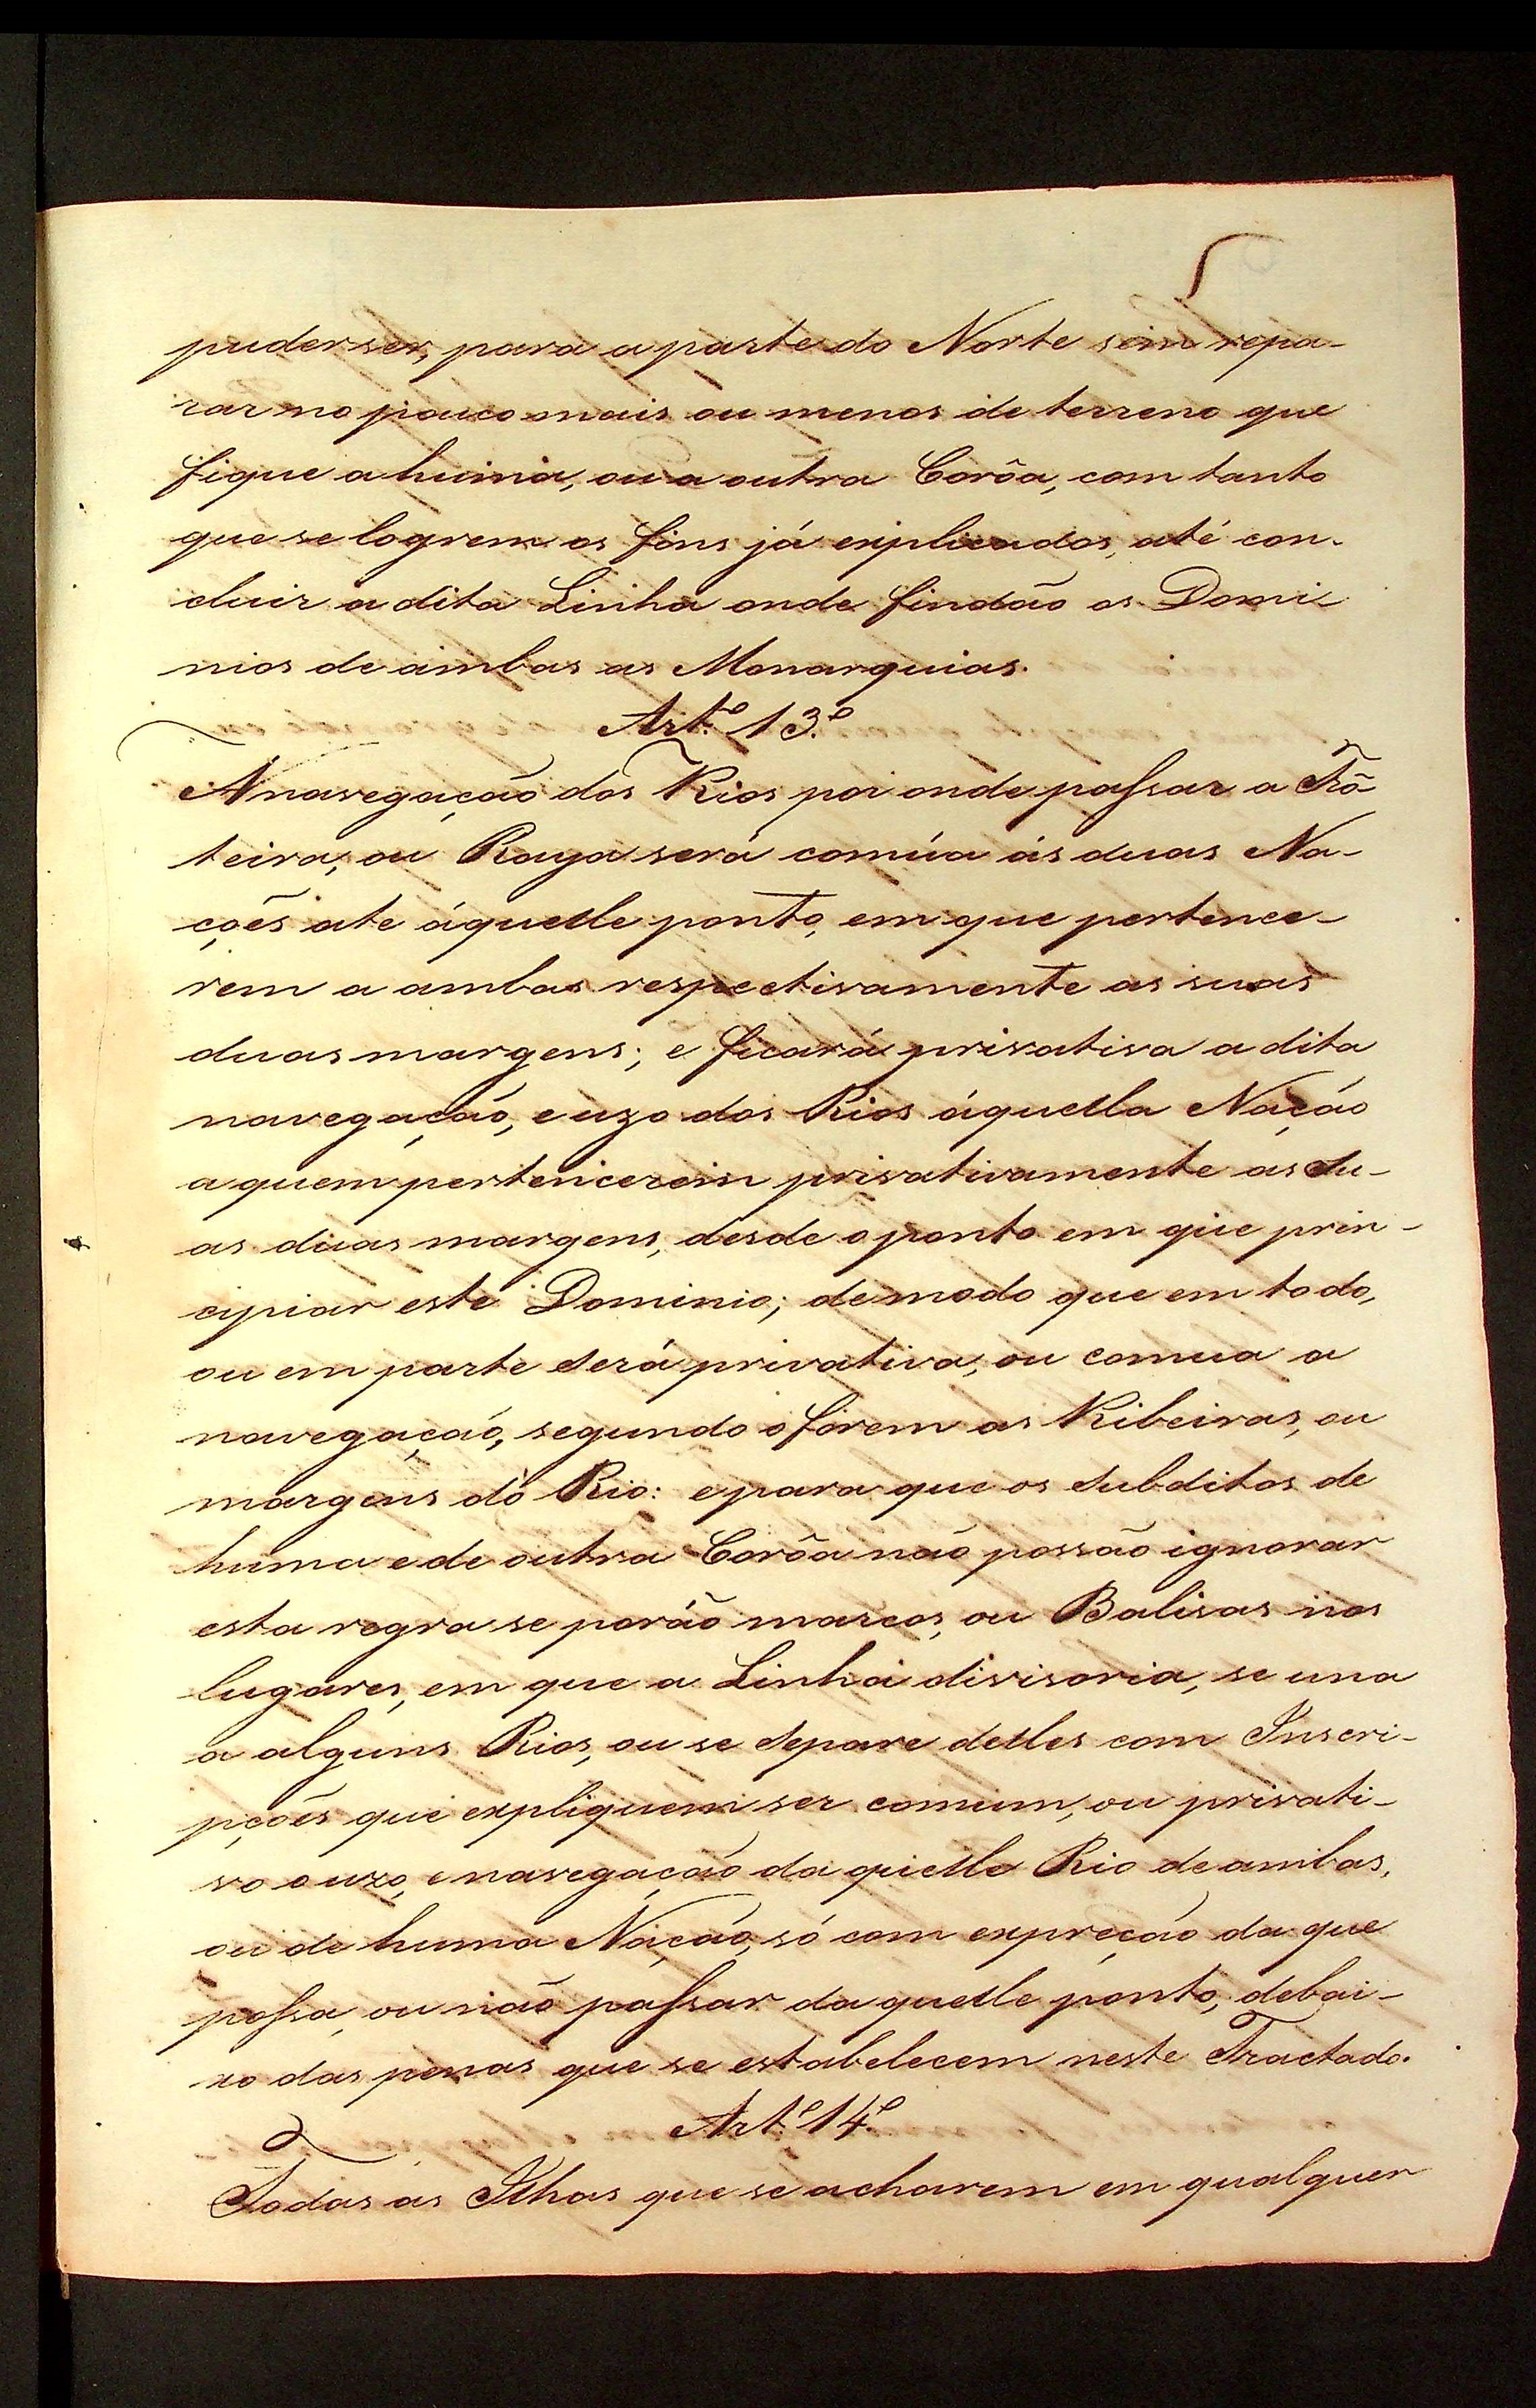 puder ser, para a parte do Norte sem repa-
rar no pouco mais ou menos de terreno que
fique a huma, ou a outra Corôa, com tanto
que se logrem os fins já explicados, até con-
cluir a dita Linha onde findão os Domi-
nios de ambas as Monarquias.
Art.º 13.º
A navegação dos Rios por onde paſsar a Frõ-
teira, ou Raya será comúa ás duas Na-
ções ate áquelle ponto, em que pertence-
rem a ambas respectivamente as suas
duas margens; e ficará privativa a dita
navegação, e uzo dos Rios áquella Nação
a quem pertencerem privativamente as su-
as duas margens, desde o ponto em que prin-
cipiar este Dominio; de modo que em todo,
ou em parte será privativa, ou comua a
navegação, segundo o forem as Ribeiras, ou
margens do Rio: e para que os subditos de
huma e de outra Corôa não possão ignorar
esta regra se porão marcos, ou Balisas nos
lugares, em que a Linha divisoria, se una
a alguns Rios, ou se separe delles com Inscri-
pções que expliquem ser comum, ou privati-
vo o uzo, e navegação da quelle Rio de ambas,
ou de huma Nação, só com expreção da que
poſsa, ou não paſsar da quelle ponto, debai-
xo das penas que se estabelecem neste Tractado.
Art.º 14.º
Todas as Ilhas que se acharem em qualquer